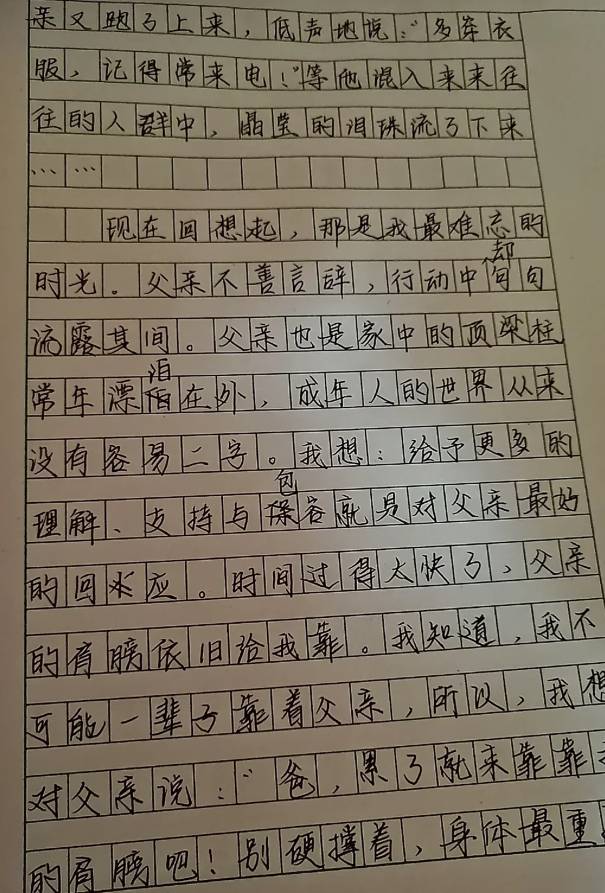 亲又跑了上来，低声地说：“多穿衣
服，记得常来电！”等他混入来来往
往的人群中，晶莹的泪珠流了下来
……
现在回想起，那是我最难忘的
时光。父亲不善言辞，行动中却句句
流露其间。父亲也是家中的顶梁柱
常年漂泊在外，成年人的世界从来
没有容易二字。我想：给予更多的
理解、支持与包容就是对父亲最好
的回应。时间过得太快了，父亲
的肩膀依旧给我靠。我知道，我不
可能一辈子靠着父亲，所以，我想
对父亲说：“爸，累了就来靠靠
的肩膀吧！别硬撑着，身体最重